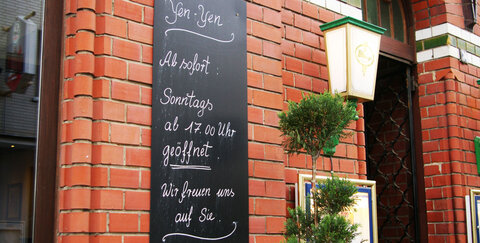 Yen - Yen
Ab sofort :
Sonntags
ab 17.00 Uhr
geöffnet.
Wir freuen uns
auf Sie.